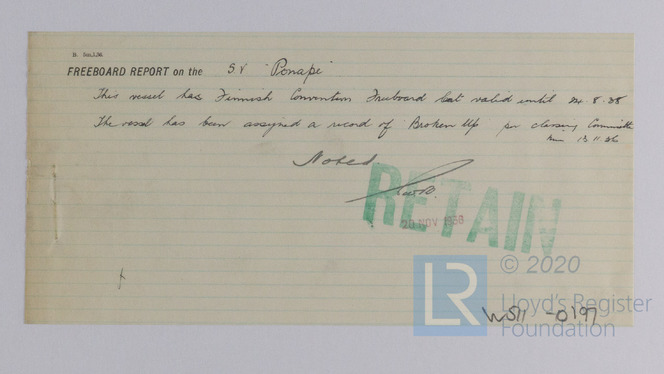 FREEBOARD REPORT on the S.V "Ponape"
This vessel has Finnish Convention Freeboard Cert valid until 24.8.38
The vessel has been assigned a record of Broken Up per classing Committee
13.11.36
Noted
RETAIN
20 NOV 1936
© 2020
LR
Lloyd's Register
Foundation
W511-0197